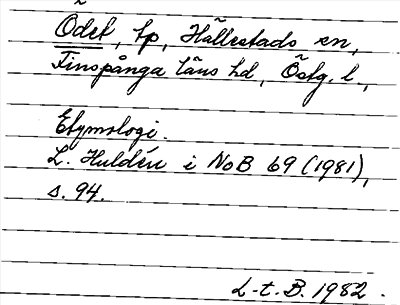 Ödet, tp, Hällestads sn,
Finspånga läns hd, Östg. l.,
Etymologi.
L. Huldén i NoB 69 (1981),
s. 94.
L-t. B. 1982.